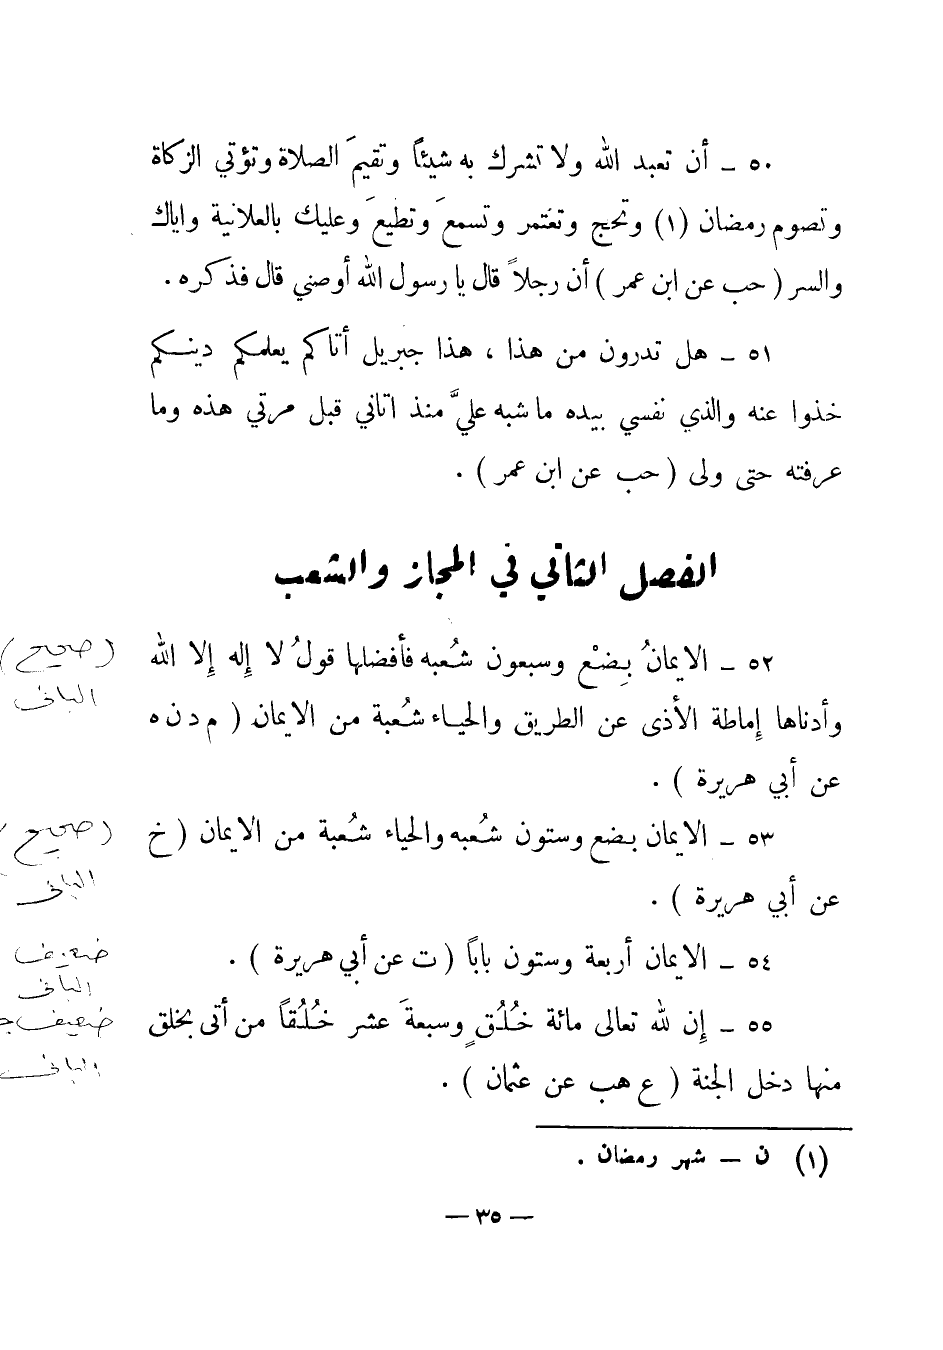 ٥٠ ــ أن تعبد الله ولا تشرك به شيئاً وتقيمَ الصلاة وتؤتي الزكاة
وتصوم رمضان (١) وتحج وتعتمر وتسمعَ وتطيعَ وعليك بالعلانية واياك
والسر ( حب عن ابن عمر ) أن رجلاً قال يا رسول الله أوصني قال فذكره .
٥١ ــ هل تدرون من هذا ، هذا جبريل أتاكم يعلمكم دينـكم
خذوا عنه والذي نفسي بيده ما شبه عليَّ منذ اتاني قبل مرتي هذه وما
عرفته حتى ولى ( حب عن ابن عمر ) .
الفصل الثاني في المجاز والشعب
٥٢ ــ الايمانُ بِضعْ وسبعون شُعبه فأفضلها قولُ لا إله إلا الله
(صحيح)
البانى
وأدناها إماطة الأذى عن الطريق والحياء شُعبة من الايمان ( م د ن ه
عن أبي هريرة ) .
٥٣ ــ الايمان بضع وستون شُعبه والحياء شُعبة من الايمان ( خ
(صحيح)
البانى
عن أبي هريرة ) .
٥٤ ــ الايمان أربعة وستون باباً ( ت عن أبي هريرة ) .
ضعيف
البانى
٥٥ ــ إن لله تعالى مائة خُلُقٍ وسبعةَ عشر خُلُقاً من أتى بخلق
ضعيف ج
البانى
منها دخل الجنة ( ع هب عن عثمان ) .
(١) ن ــ شهر رمضان .
— ٣٥ —